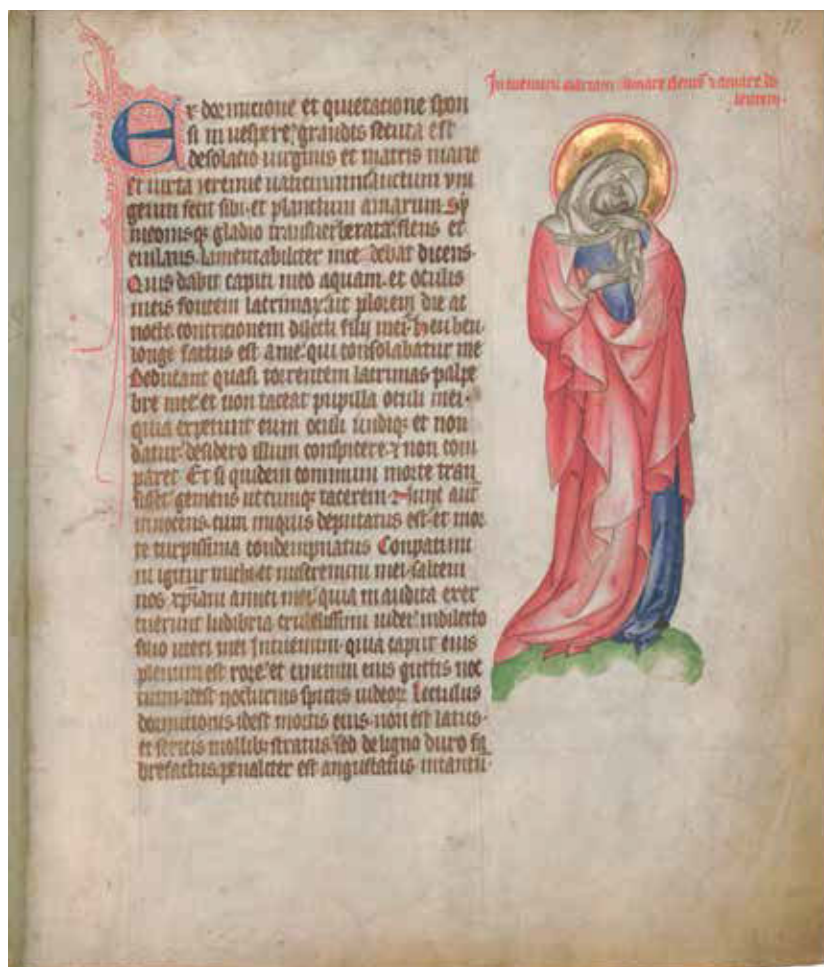 17
Intuemini mariam amare flentē ⁊ amare do
lentem·
Ex dormicione et quietacione spon
si in uespere grandis secuta est
desolacio uirginis et matris marie
et iuxta ieremie uaticinium luctum vni
geniti fecit sibi· et planctum amarum· Sy
meonisqꝫ gladio transuerberata· flens et
eiulans lamentabiliter incedebat dicens·
Quis dabit capiti meo aquam· et oculis
meis fontem lacrimaꝝ ut plorem die ac
nocte contricionem dilecti filij mei· heu heu·
longe factus est a me· qui consolabatur me
Deducant quasi torrentem lacrimas palpe
bre mee et non taceat pupilla oculi mei·
quia expetunt eum oculi undiqꝫ et non
datur· desidero illum conspicere ⁊ non com
paret Et si quidem communi morte tran
sisset gemens utcumqꝫ tacerem· Nunc aut
innocens· cum iniquis deputatus est· et mor
te turpissima condempnatus Conpatimi
ni igitur michi· et miseremini mei· saltem
uos xp̄iani amici mei· quia inaudita exer
cuerunt ludibria crudelissimi iudei· in dilecto
filio uteri mei Intuemini· quia caput eius
plenum est rore· et cincinni eius guttis noc
cium· idest nocturnis sputis iudeoꝝ Lectulus
dormitionis· idest mortis eius· non est latus·
et sericis mollibꝫ stratus· sed de ligno duro fa
brefactus· penaliter est angustatus intantū·